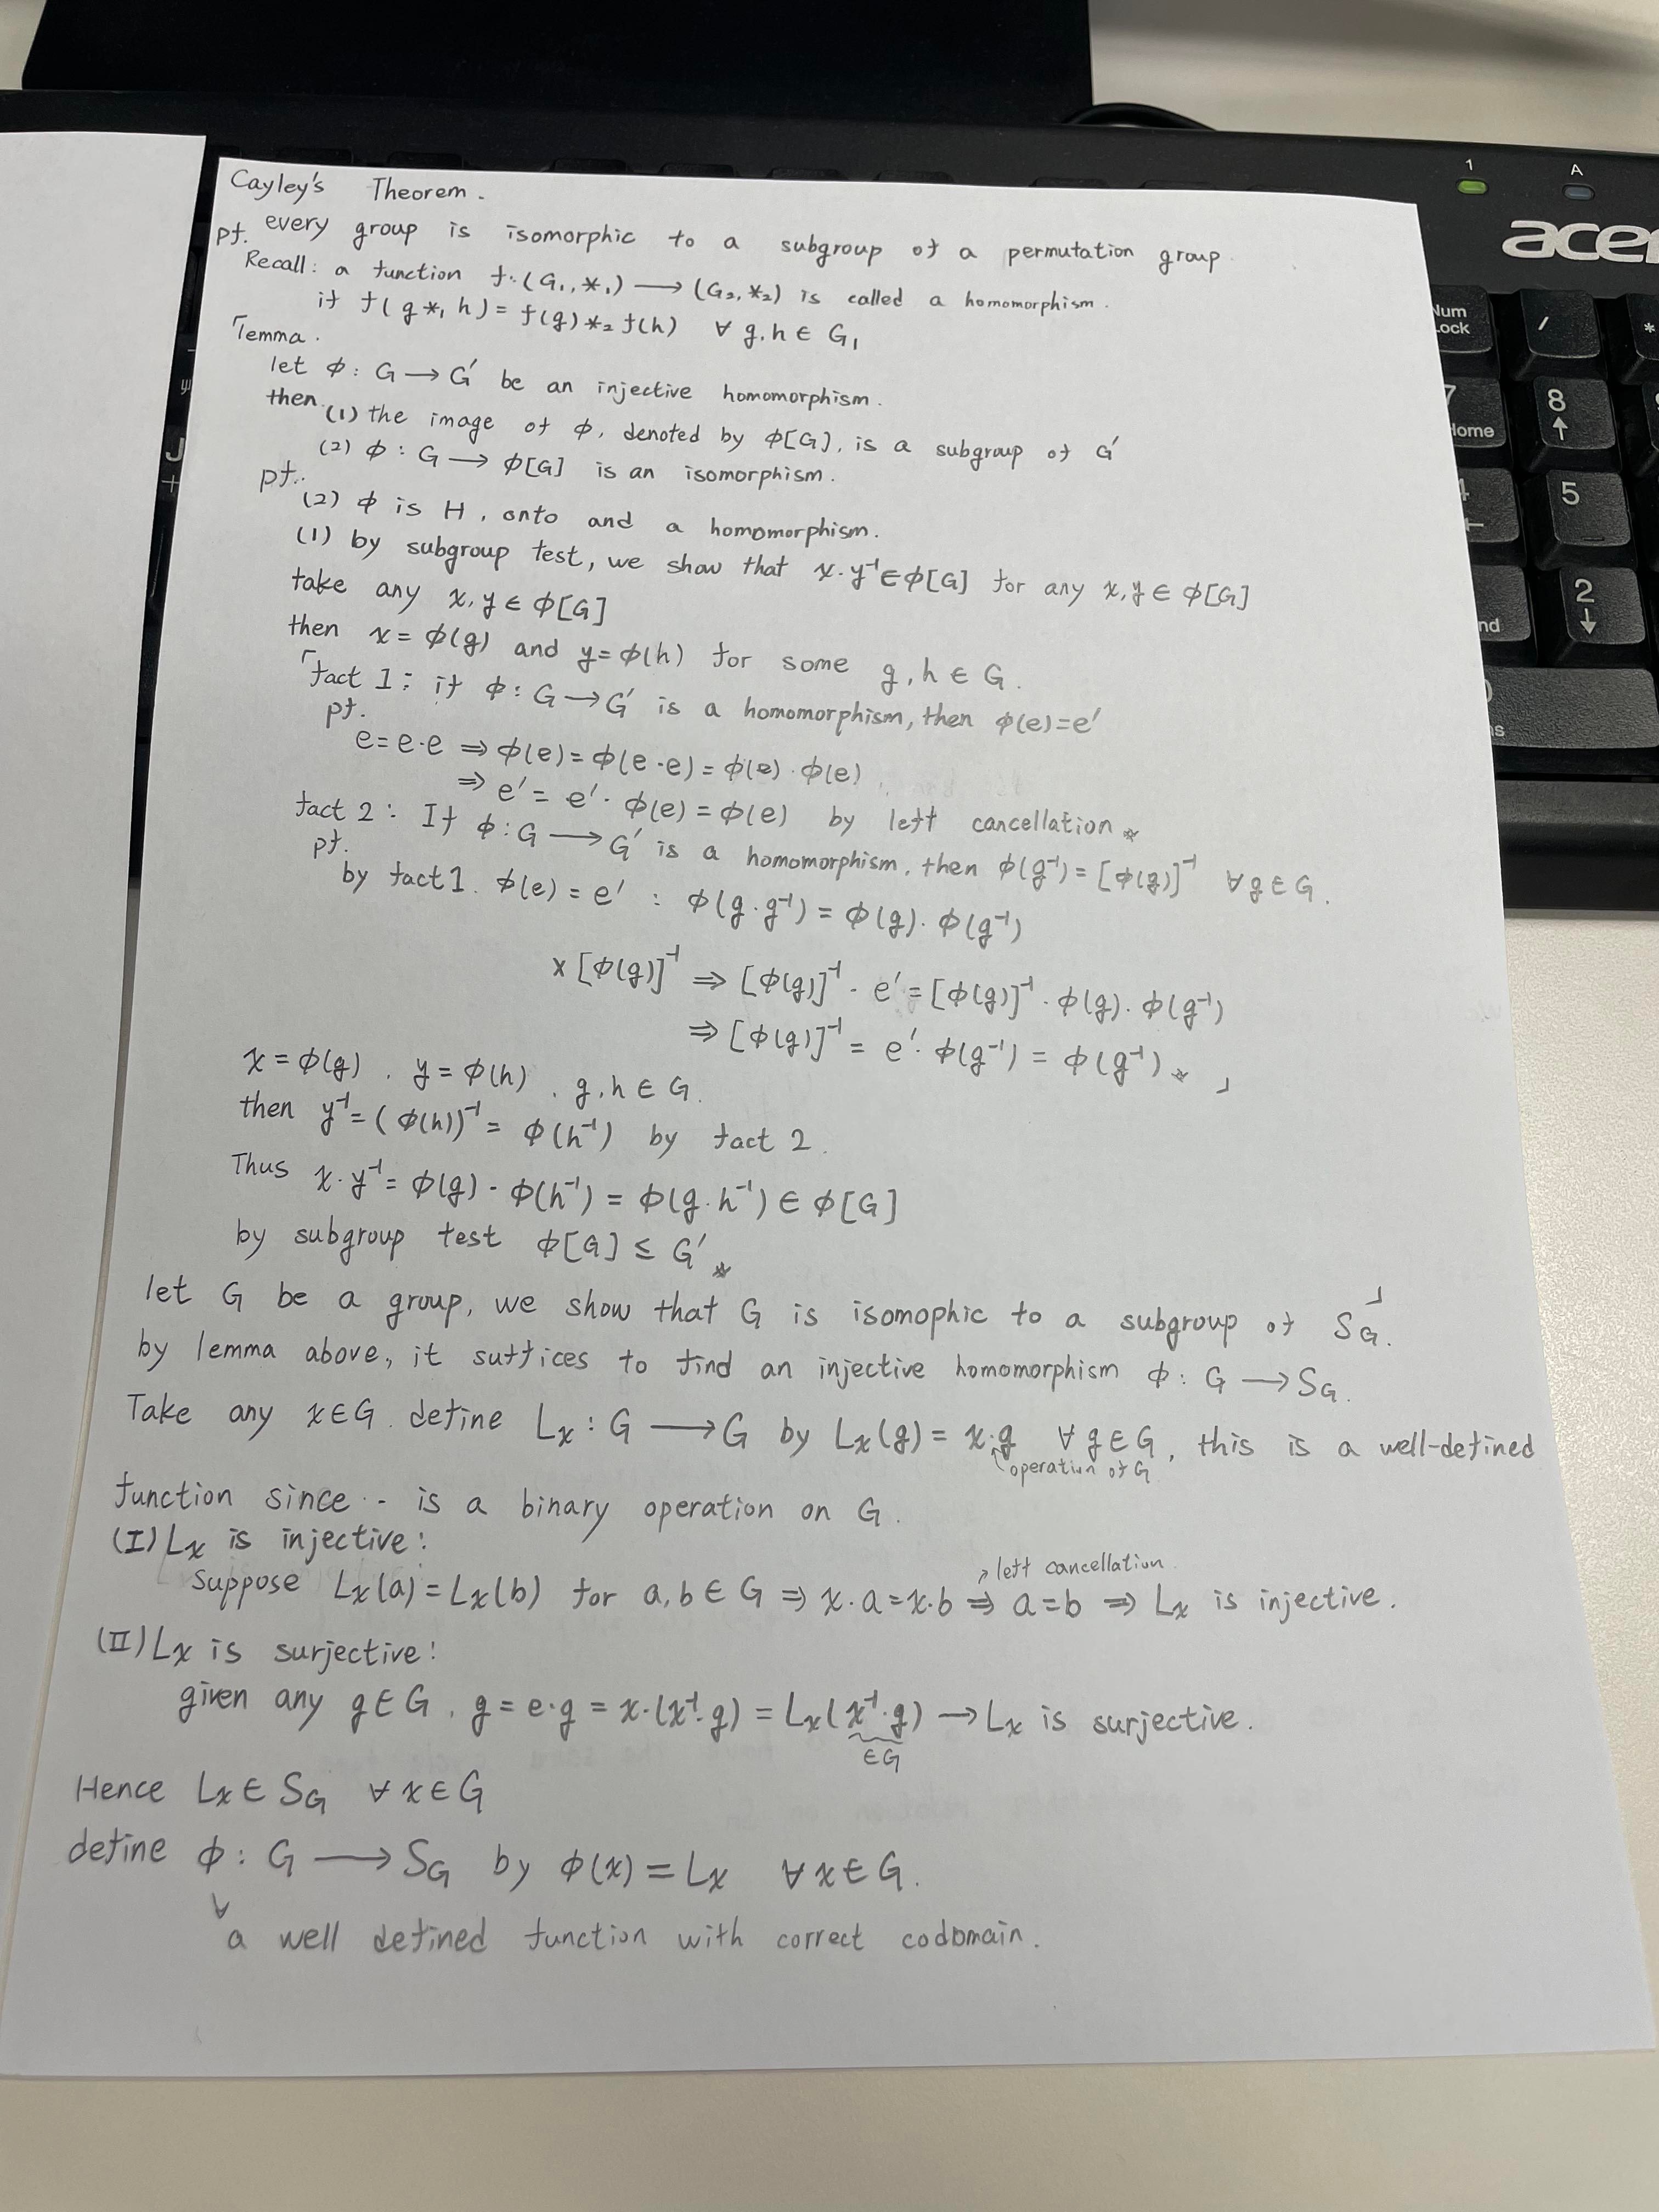 Cayley's Theorem.
pf. every group is isomorphic to a subgroup of a permutation group.
Recall: a function f:(G₁,*₁) ⟶ (G₂,*₂) is called a homomorphism.
if f(g *₁ h) = f(g) *₂ f(h) ∀ g,h ∈ G₁
「lemma.
let ϕ: G ⟶ G' be an injective homomorphism.
then (1) the image of ϕ, denoted by ϕ[G], is a subgroup of G'
(2) ϕ: G ⟶ ϕ[G] is an isomorphism.
pf.
(2) ϕ is 1-1, onto and a homomorphism.
(1) by subgroup test, we show that x·y⁻¹ ∈ ϕ[G] for any x,y ∈ ϕ[G]
take any x,y ∈ ϕ[G]
then x = ϕ(g) and y = ϕ(h) for some g,h ∈ G.
「fact 1: if ϕ: G ⟶ G' is a homomorphism, then ϕ(e)=e'
pf.
e=e·e ⇒ ϕ(e) = ϕ(e·e) = ϕ(e)·ϕ(e)
⇒ e' = e'·ϕ(e) = ϕ(e) by left cancellation ※
fact 2: If ϕ: G ⟶ G' is a homomorphism, then ϕ(g⁻¹) = [ϕ(g)]⁻¹ ∀g∈G.
pf.
by fact 1. ϕ(e) = e' : ϕ(g·g⁻¹) = ϕ(g)·ϕ(g⁻¹)
x [ϕ(g)]⁻¹ ⇒ [ϕ(g)]⁻¹ · e' = [ϕ(g)]⁻¹·ϕ(g)·ϕ(g⁻¹)
⇒ [ϕ(g)]⁻¹ = e'·ϕ(g⁻¹) = ϕ(g⁻¹) ※ 」
x = ϕ(g) , y = ϕ(h) , g,h ∈ G.
then y⁻¹ = (ϕ(h))⁻¹ = ϕ(h⁻¹) by fact 2.
Thus x·y⁻¹ = ϕ(g)·ϕ(h⁻¹) = ϕ(g·h⁻¹) ∈ ϕ[G]
by subgroup test ϕ[G] ≤ G' ※
」
let G be a group, we show that G is isomophic to a subgroup of S_G.
by lemma above, it suffices to find an injective homomorphism ϕ: G ⟶ S_G.
Take any x∈G. define Lₓ: G ⟶ G by Lₓ(g) = x·g ∀ g∈G, this is a well-defined
operation of G
function since · is a binary operation on G.
(I) Lₓ is injective:
left cancellation
Suppose Lₓ(a) = Lₓ(b) for a,b ∈ G ⇒ x·a = x·b ⇒ a=b ⇒ Lₓ is injective.
(II) Lₓ is surjective:
given any g∈G, g = e·g = x·(x⁻¹·g) = Lₓ(x⁻¹·g) → Lₓ is surjective.
∈G
Hence Lₓ ∈ S_G ∀ x∈G
define ϕ: G ⟶ S_G by ϕ(x) = Lₓ ∀ x∈G.
a well defined function with correct codomain.
acer
1
A
Num
Lock
/
*
7
Home
8
↑
5
2
↓